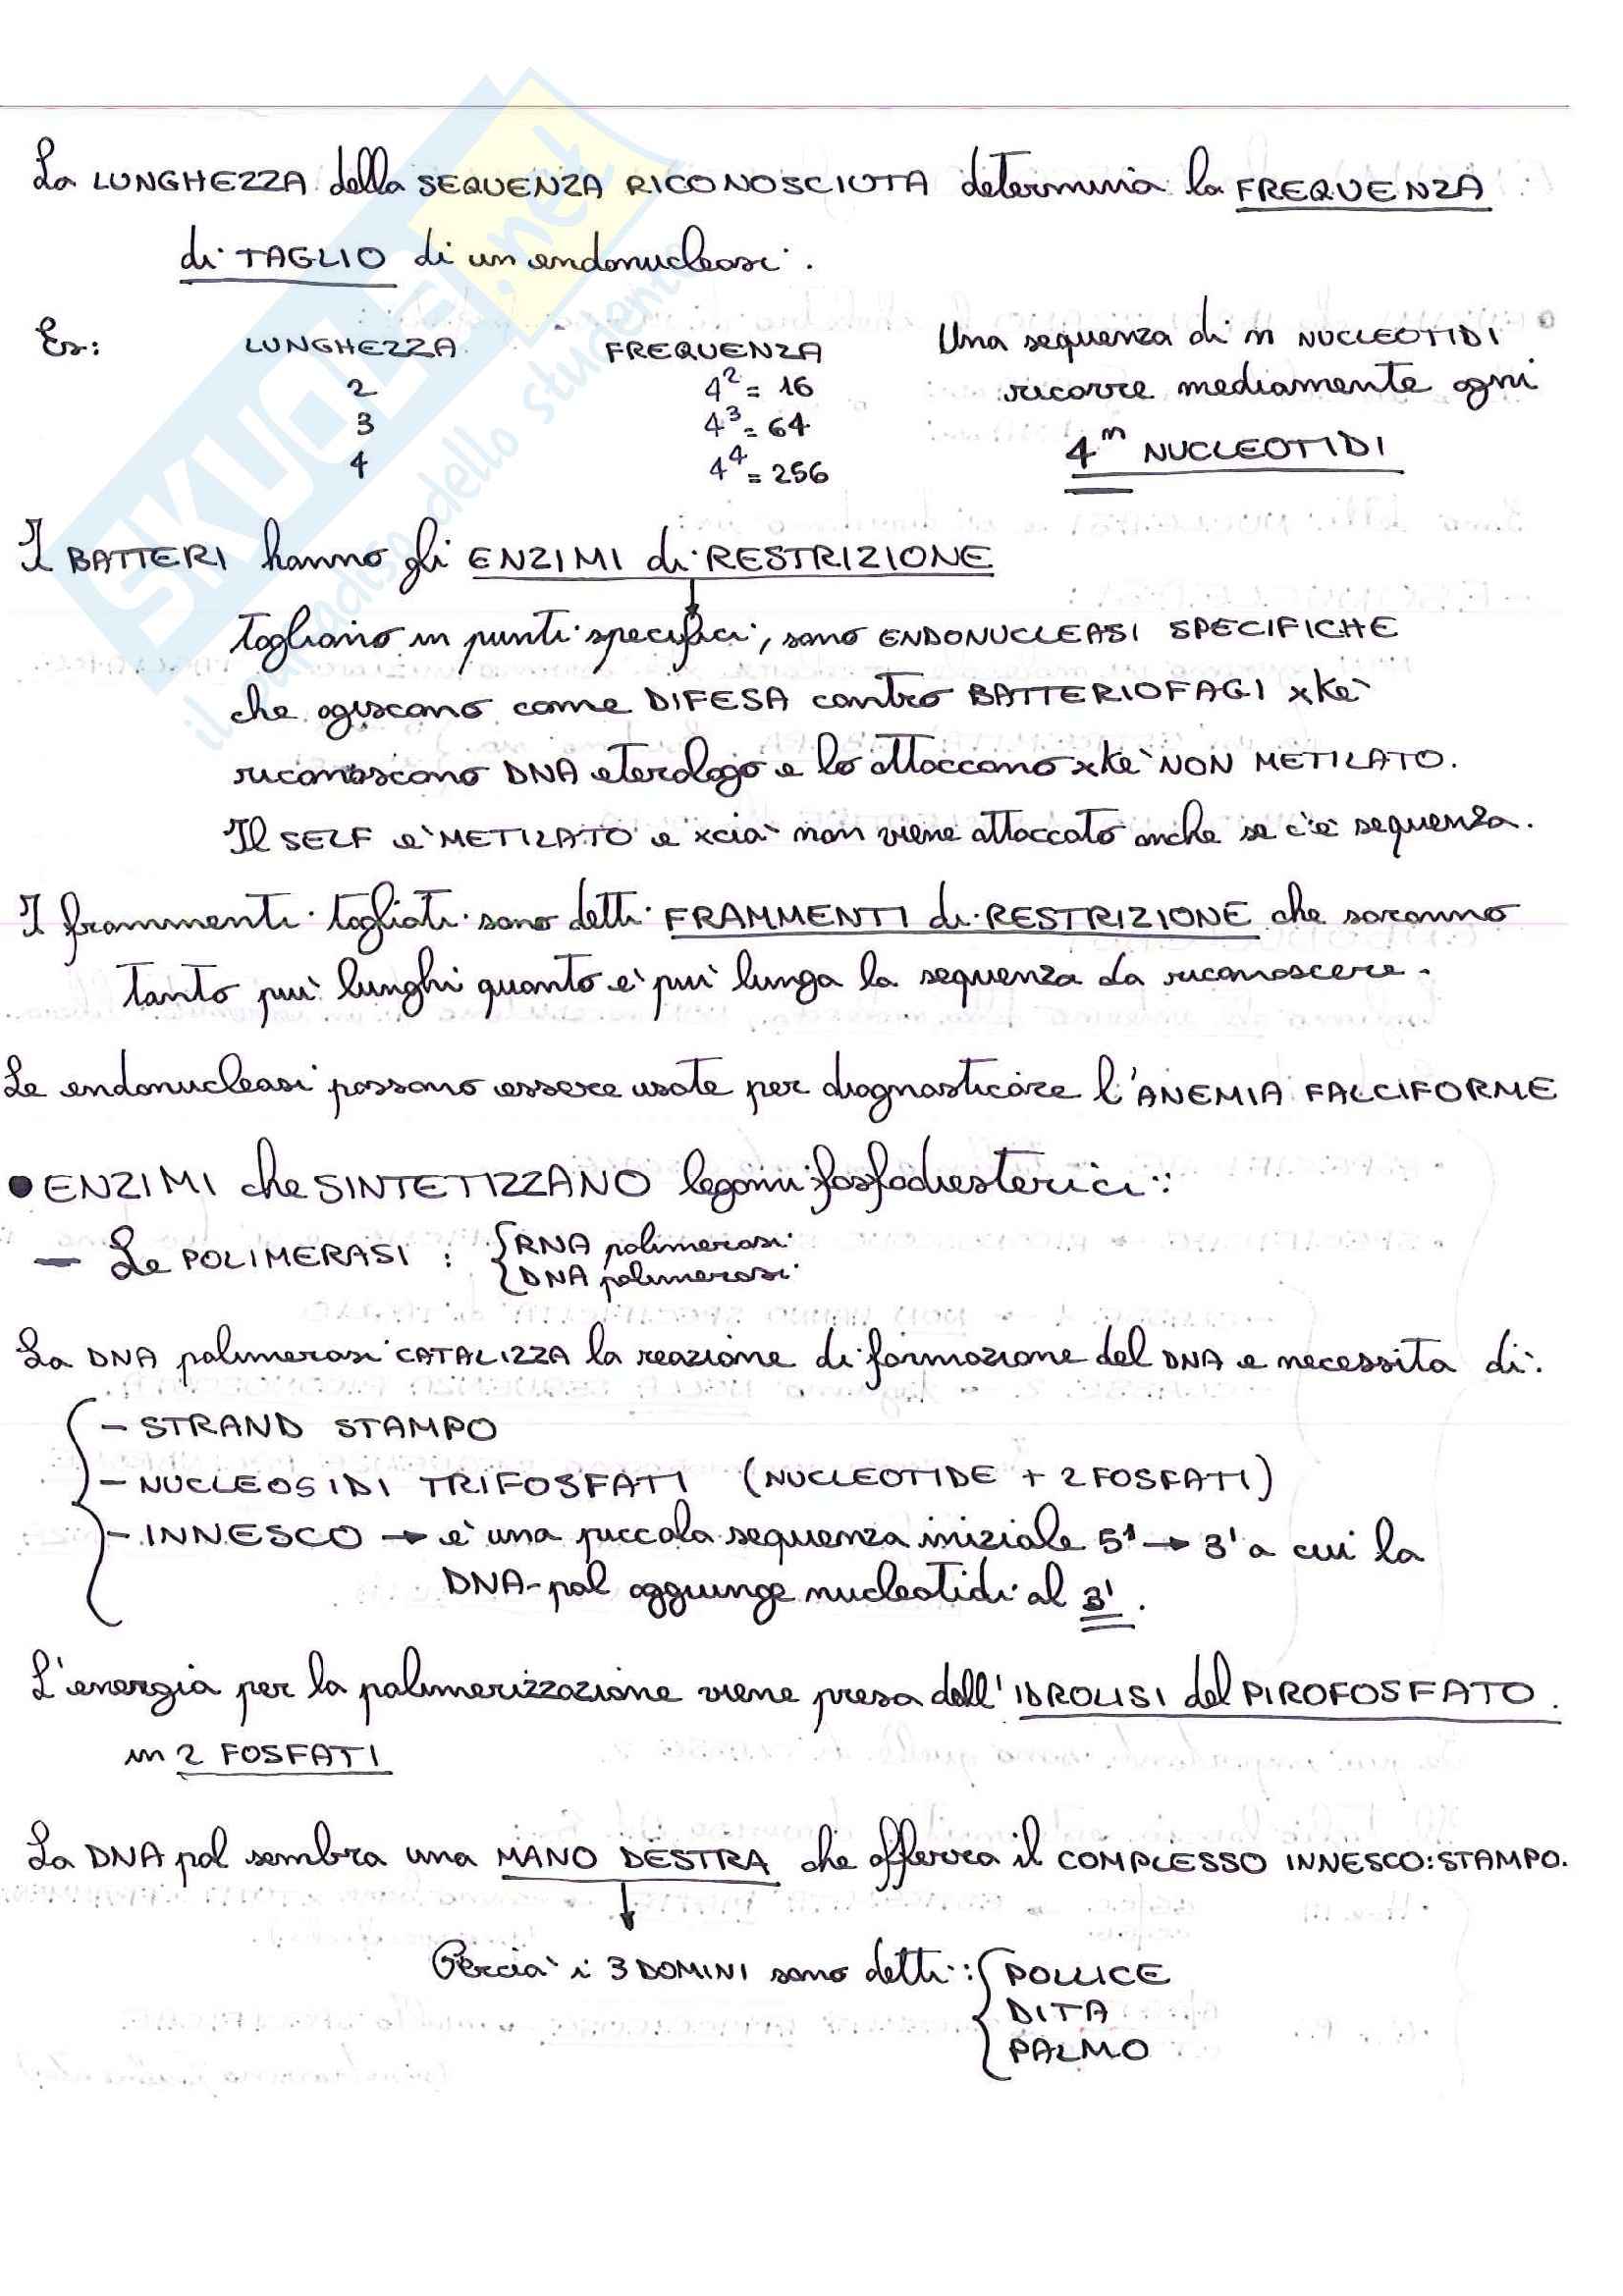 La LUNGHEZZA della SEQUENZA RICONOSCIUTA determina la FREQUENZA
di TAGLIO di un endonucleasi.
Es: LUNGHEZZA FREQUENZA Una sequenza di n NUCLEOTIDI
2 4² = 16 ricorre mediamente ogni
3 4³ = 64 4ⁿ NUCLEOTIDI
4 4⁴ = 256
I BATTERI hanno gli ENZIMI di RESTRIZIONE
↓
tagliano in punti specifici, sono ENDONUCLEASI SPECIFICHE
che agiscono come DIFESA contro BATTERIOFAGI xkè
riconoscono DNA eterologo e lo attaccano xkè NON METILATO.
Il SELF è METILATO e xciò non viene attaccato anche se c'è sequenza.
I frammenti tagliati sono detti FRAMMENTI di RESTRIZIONE che saranno
tanto più lunghi quanto è più lunga la sequenza da riconoscere.
Le endonucleasi possono essere usate per diagnosticare l'ANEMIA FALCIFORME
• ENZIMI che SINTETIZZANO legami fosfodiesterici:
— Le POLIMERASI : { RNA polimerasi
{ DNA polimerasi
La DNA polimerasi CATALIZZA la reazione di formazione del DNA e necessita di:
- STRAND STAMPO
- NUCLEOSIDI TRIFOSFATI (NUCLEOTIDE + 2 FOSFATI)
- INNESCO → è una piccola sequenza iniziale 5' → 3' a cui la
DNA-pol aggiunge nucleotidi al 3'.
L'energia per la polimerizzazione viene presa dall'IDROLISI del PIROFOSFATO
in 2 FOSFATI
La DNA pol sembra una MANO DESTRA che afferra il COMPLESSO INNESCO:STAMPO.
↓
Perciò i 3 DOMINI sono detti: { POLLICE
DITA
PALMO
SKUOLA.net
il paradiso dello studente